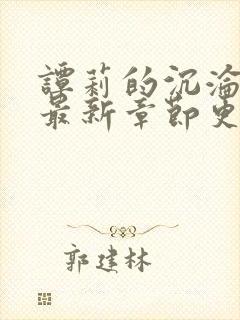 譚莉的沉淪
最新章節更
郭建林